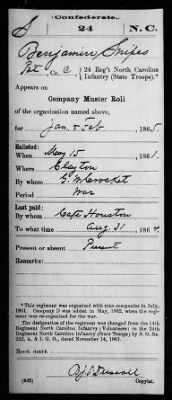 Confederate.
S 24 N.C.
Benjamin Snipes
Pvt., Co. C, { 24 Reg't North Carolina
Infantry (State Troops).*
Appears on
Company Muster Roll
of the organization named above,
for Jan & Feb, 1865
Enlisted:
When May 15, 1861.
Where Clayton
By whom
Period War
Last paid:
By whom Capt Houston
To what time Aug 31, 1864.
Present or absent Present
Remarks:
*This regiment was organized with nine companies in July,
1861. Company D was added in May, 1862, when the regi-
ment was re-organized for the war.
The designation of the regiment was changed from the 14th
Regiment North Carolina Infantry (Volunteers) to the 24th
Regiment North Carolina Infantry (State Troops) by S. O. No.
222, A. & I. G. O., dated November 14, 1861.
Book mark:
(642) Copyist.